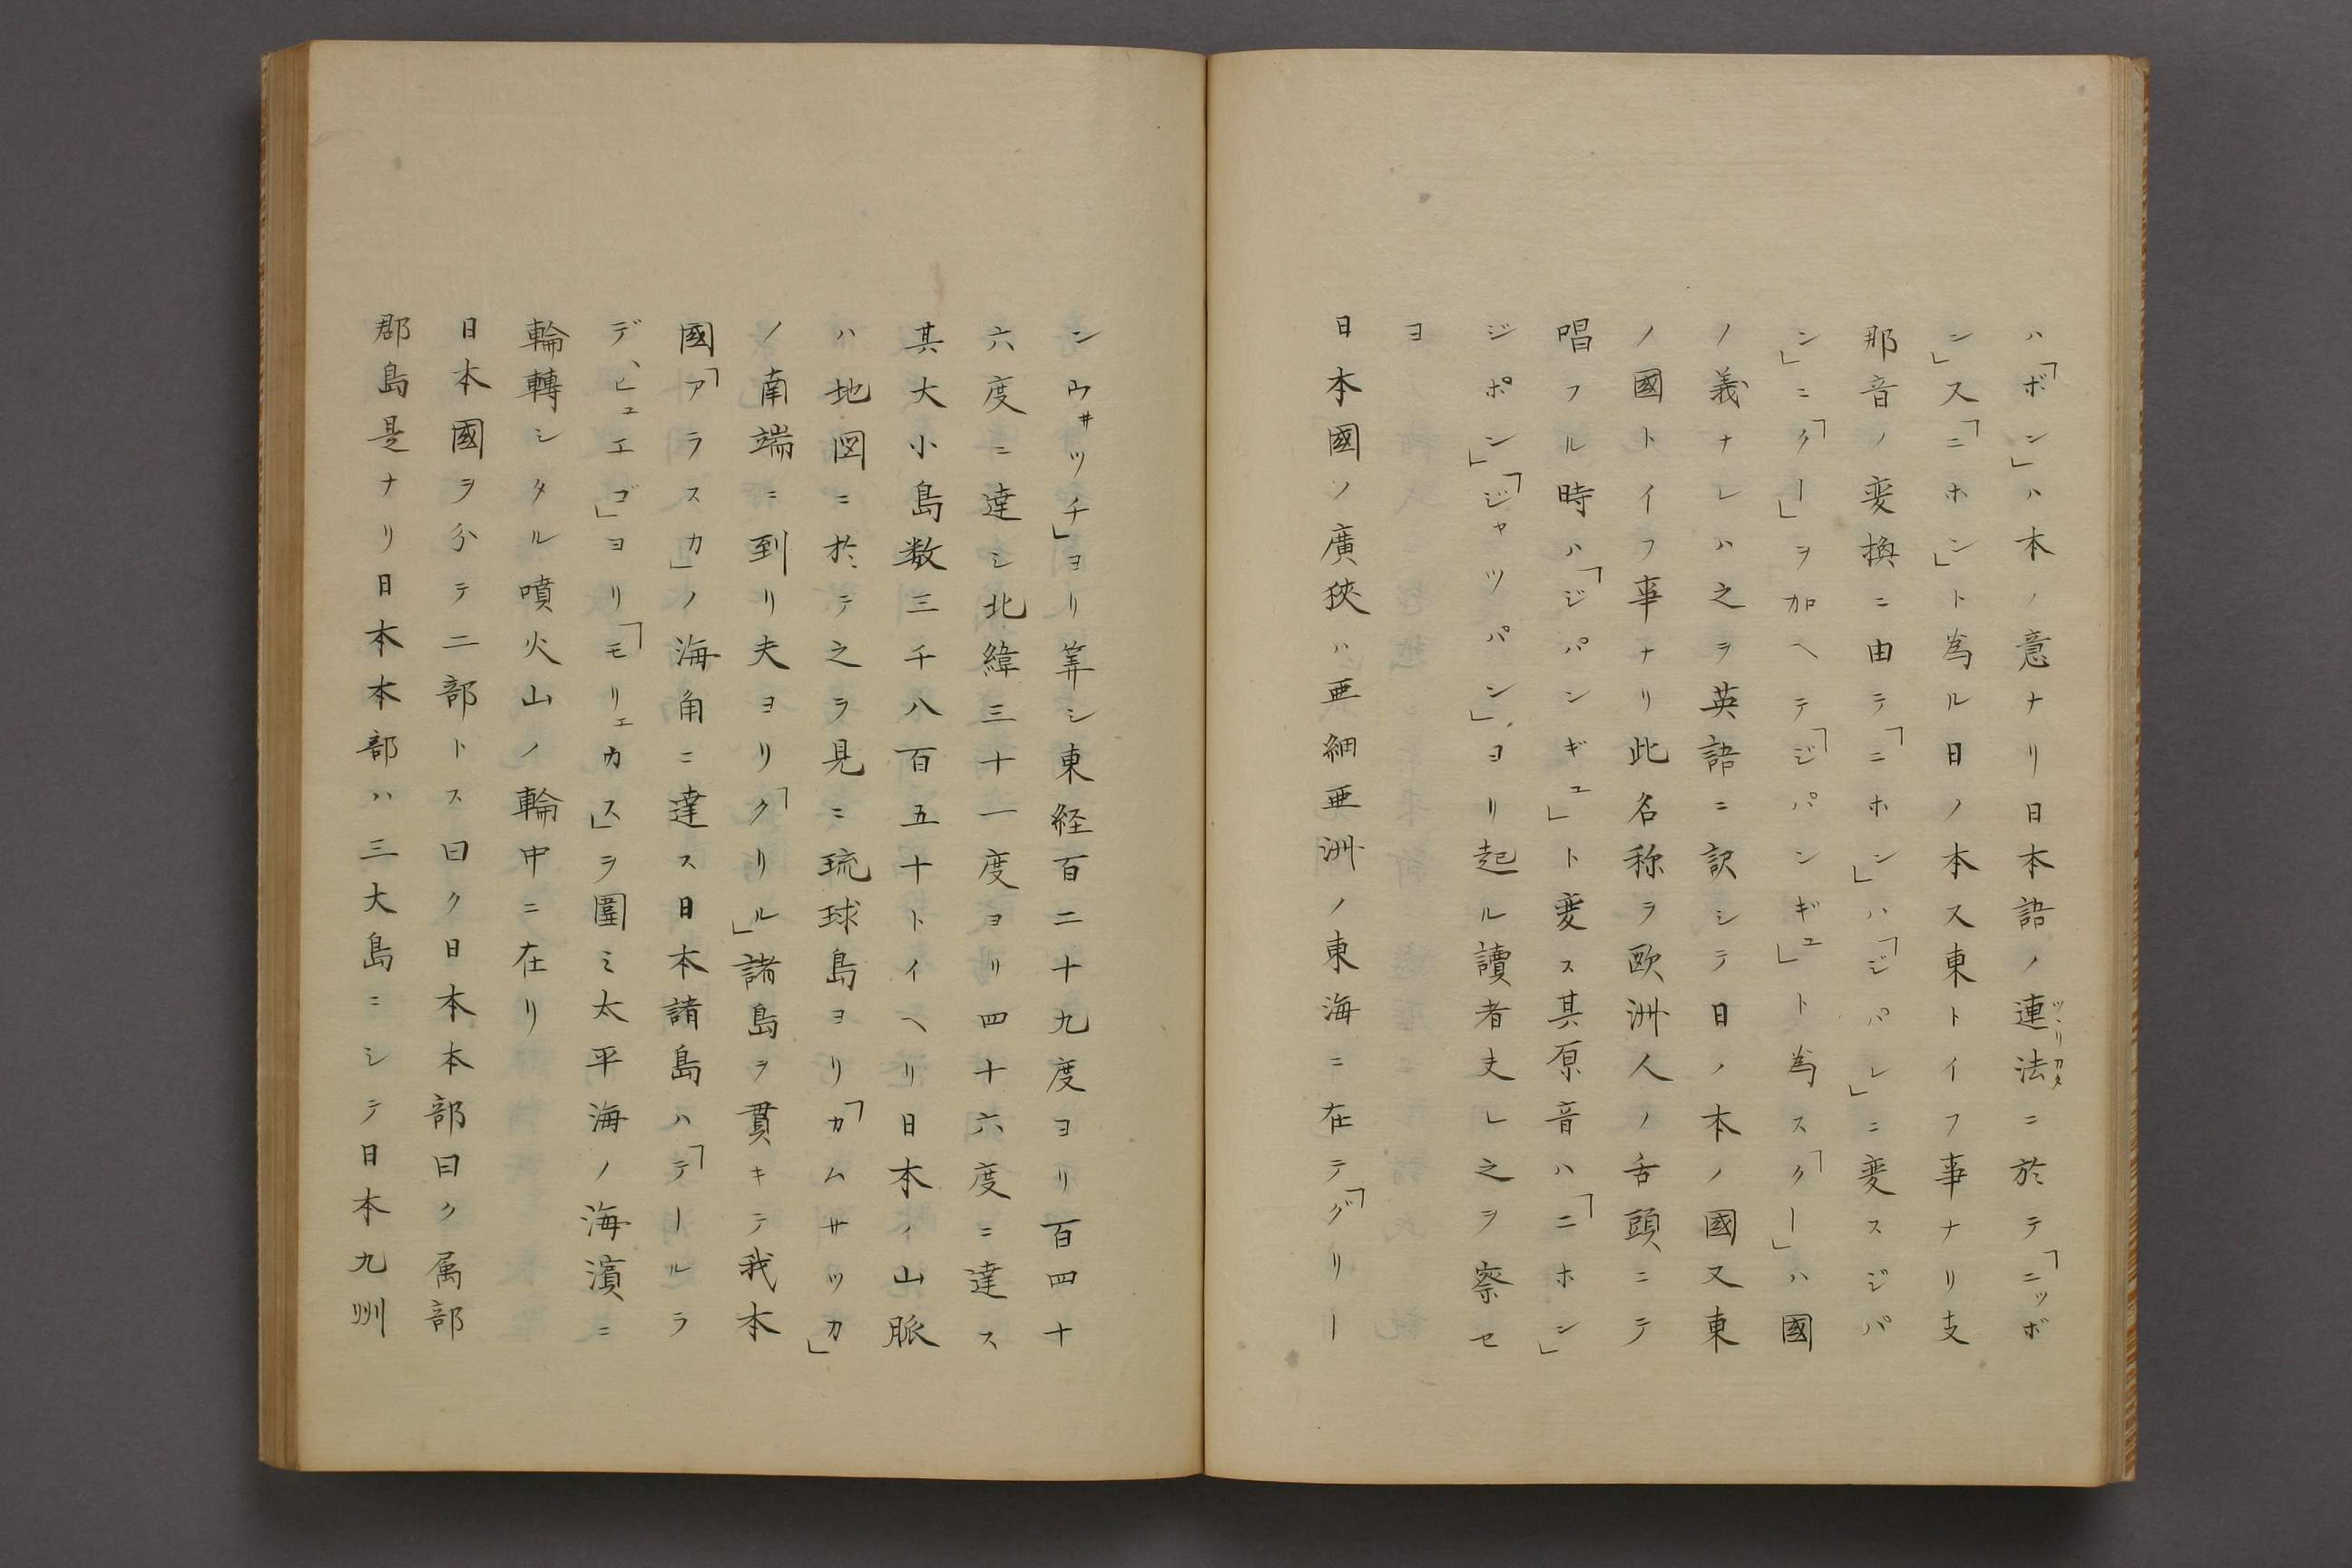 ハ「ボン」ハ本ノ意ナリ日本語ノ連法ニ於テ「ニッボ
ツヽリカタ
ン」又「ニホン」ト為ル日ノ本又東トイフ事ナリ支
那音ノ変換ニ由テ「ニホン」ハ「ジパン」ニ変スジパ
ン」ニ「クー」ヲ加ヘテ「ジパンギュ」ト為ス「クー」ハ國
ノ義ナレハ之ヲ英語ニ訳シテ日ノ本ノ國又東
ノ國トイフ事ナリ此名称ヲ欧洲人ノ舌頭ニテ
唱フル時ハ「ジパンギュ」ト変ス其原音ハ「ニホン」
ジポン」「ジャッパン」ヨリ起ル讀者夫レ之ヲ察セ
ヨ
日本國ノ廣狹ハ亜細亜洲ノ東海ニ在テ「グリー
ンウ井ッチ」ヨリ筭シ東経百二十九度ヨリ百四十
六度ニ達シ北緯三十一度ヨリ四十六度ニ達ス
其大小島数三千八百五十トイヘリ日本ノ山脈
ハ地図ニ於テ之ヲ見ニ琉球島ヨリ「カムサツカ」
ノ南端ニ到リ夫ヨリ「クリル」諸島ヲ貫キテ我本
國「アラスカ」ノ海角ニ達ス日本諸島ハ「テールラ
デ、ヒュエゴ」ヨリ「モリエカス」ヲ圍ミ太平海ノ海濱ニ
輪轉シタル噴火山ノ輪中ニ在リ
日本國ヲ分テ二部トス曰ク日本本部曰ク属部
郡島是ナリ日本本部ハ三大島ニシテ日本九州